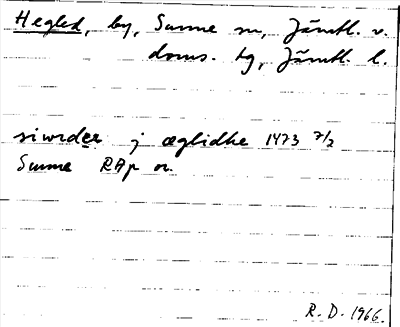 Hegled, by, Sunne sn, Jämtl. v.
doms. tg, Jämtl. l.
siwrdee j æglidhe 1473 7/2
Sunne RAp or.
R. D. 1966.